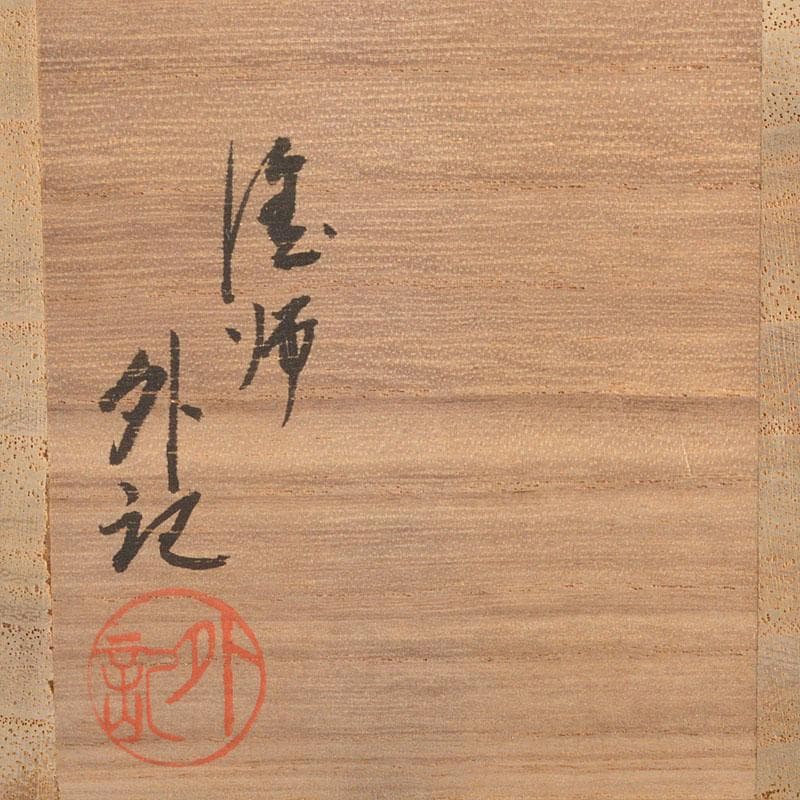 塗師
外記
外記